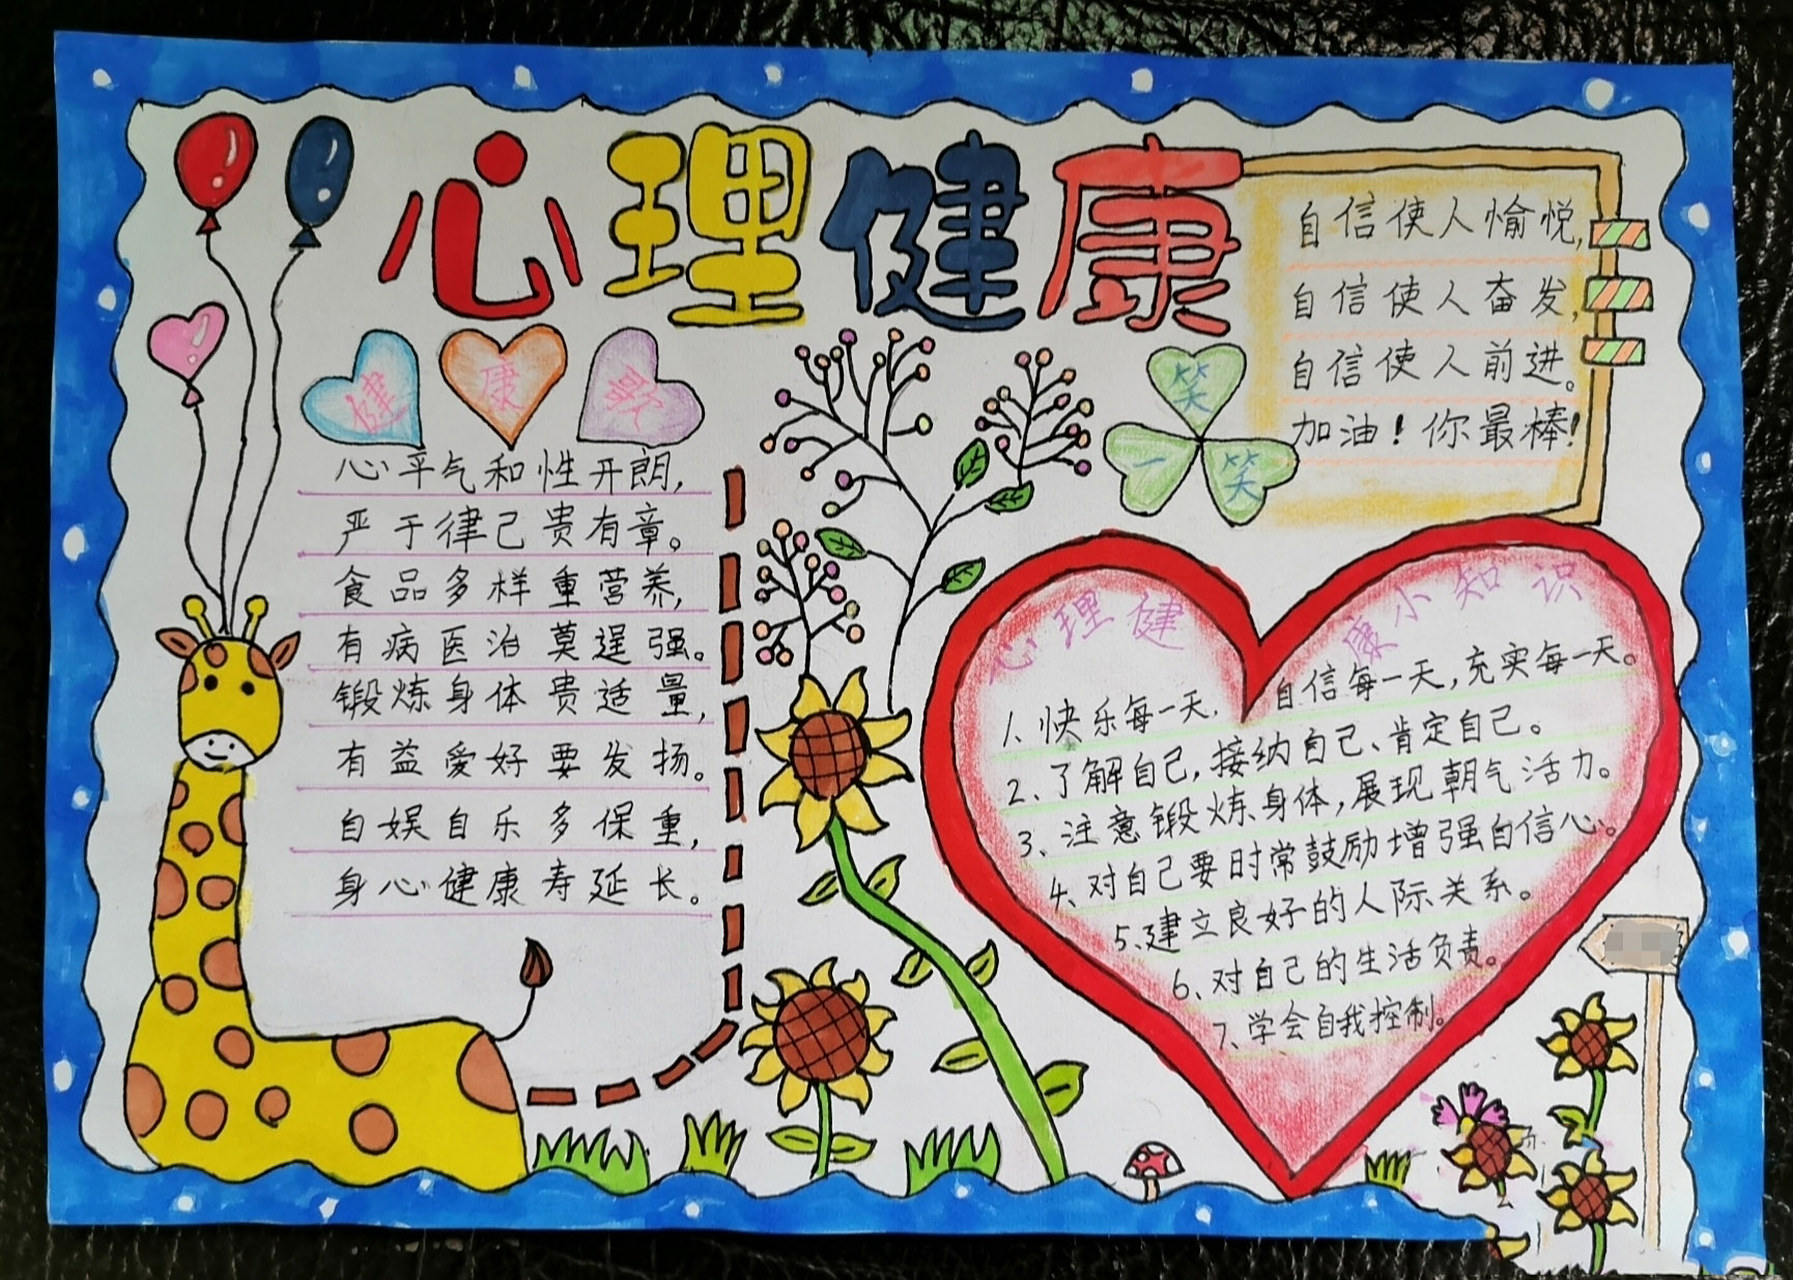 心理健康
健康
心平气和性开朗,
严于律己贵有章。
食品多样重营养,
有病医治莫逞强。
锻炼身体贵适量,
有益爱好要发扬。
自娱自乐多保重,
身心健康寿延长。
笑一笑
自信使人愉悦,
自信使人奋发,
自信使人前进。
加油！你最棒！
心理健康小知识
1、快乐每一天,自信每一天,充实每一天。
2、了解自己,接纳自己、肯定自己。
3、注意锻炼身体,展现朝气活力。
4、对自己要时常鼓励增强自信心。
5、建立良好的人际关系。
6、对自己的生活负责。
7、学会自我控制。